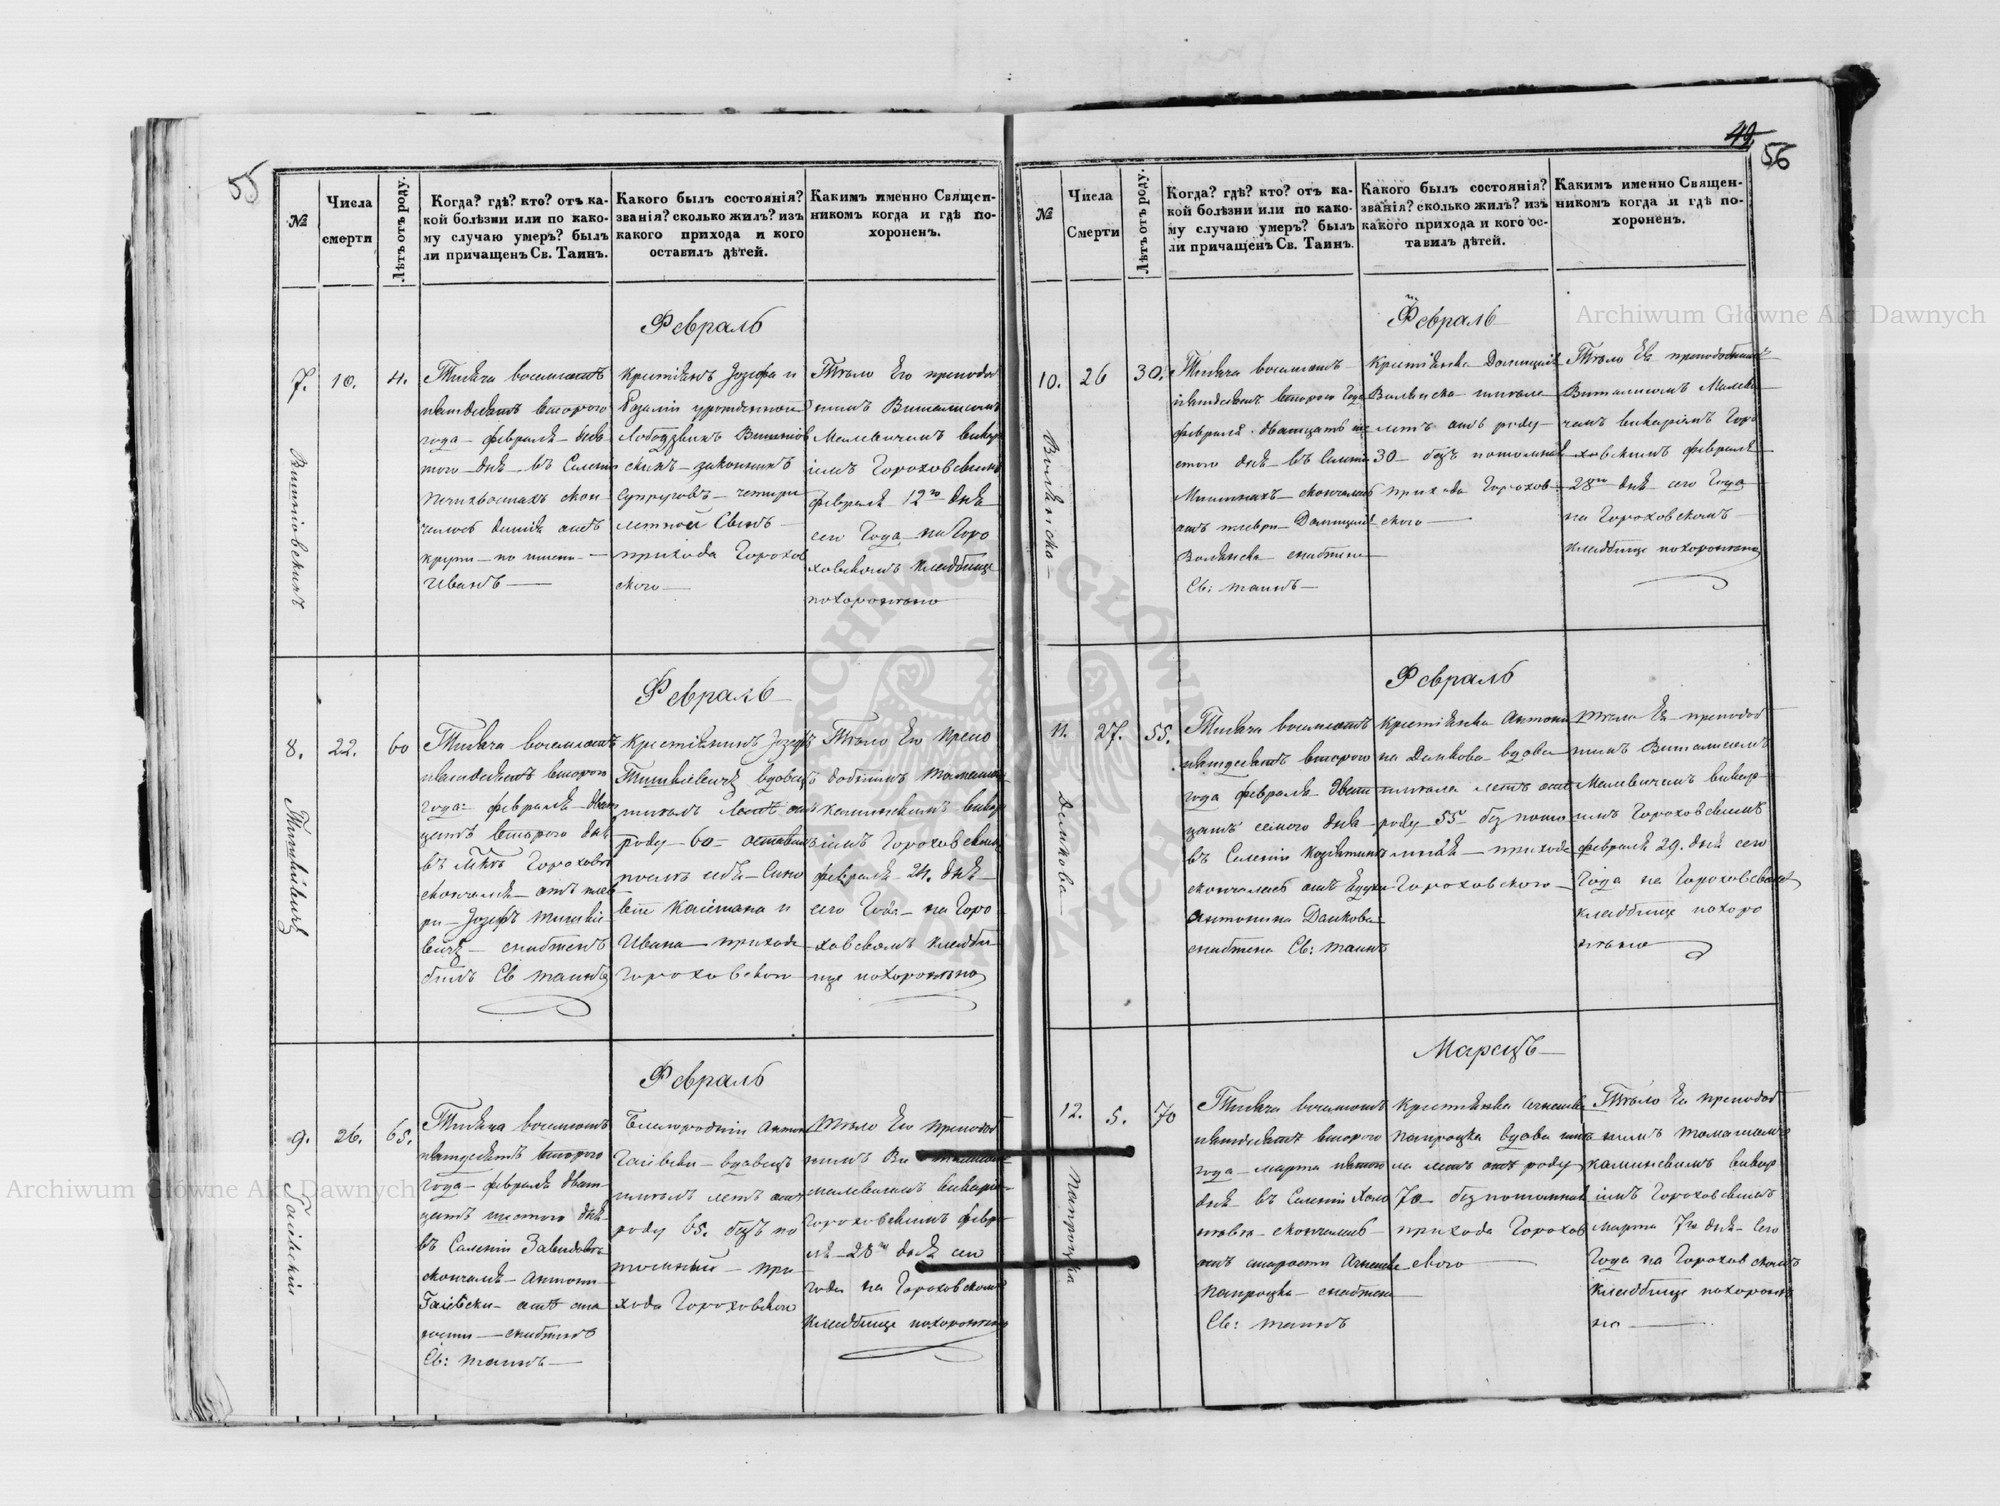 55
№
Числа
смерти
Лѣтъ отъ роду.
Когда? гдѣ? кто? отъ ка-
кой болѣзни или по како-
му случаю умеръ? былъ
ли причащенъ Св. Таинъ.
Какого былъ состоянія?
званія? сколько жилъ? изъ
какого прихода и кого
оставилъ дѣтей.
Какимъ именно Священ-
никомъ когда и гдѣ по-
хороненъ.
Февраль
7.
10.
4.
Тысяча восемьсотъ
пятдесятъ второго
года февраля деся
того дня въ Селеніи
скон
чалось дитя отъ
крупи по имени
Иванъ
Крестіянъ Іозефа и
Розаліи урожденной
законныхъ
Супруговъ четыри
летной Сынъ
прихода Горохов
ского
Тѣло Его преподоб
нымъ Виталисомъ
Малевичемъ викар
іимъ Гороховскимъ
февраля 12го дня
сего Года на Горо
ховскомъ кладбище
похоронено
Февраль
8.
22.
60
Тишкѣвичъ
Тысяча восемьсотъ
пятдесятъ второго
года февраля двад
цать второго дня
въ Мѣст Горохове
скончался отъ плев
ри Іозефъ Тишкѣ
вичъ снабженъ
былъ Св таинъ
Крестіянинъ Іозефъ
Тишкѣвичъ вдовецъ
жилъ лѣтъ отъ
роду 60 оставилъ
послѣ себя Сыно
веи Каіетана и
Ивана прихода
Гороховского
Тѣло Его препо
добнымъ Томашомъ
Каминскимъ викар
іимъ Гороховскимъ
февраля 24. дня
сего Года на Горо
ховскомъ кладби
ще похоронено
Февраль
9.
26.
65.
Гаіевскій
Тысяча восемьсотъ
пятдесятъ второго
года февраля двад
цать шестого дня
въ Селеніи
скончался Антони
Гаіевски отъ ста
рости снабженъ
Св: таинъ
Благородній Антон
Гаіевски вдовецъ
жилъ летъ отъ
роду 65. безъ по
томный при
хода Гороховского
Тѣло Его преподоб
нымъ
Малевичемъ викарі
Гороховскимъ февра
ля 28го дня сего
года на Гороховскомъ
кладбище похоронено
49
56
№
Числа
Смерти
Лѣтъ отъ роду.
Когда? гдѣ? кто? отъ ка-
кой болѣзни или по како-
му случаю умеръ? былъ
ли причащенъ Св. Таинъ.
Какого былъ состоянія?
званія? сколько жилъ? изъ
какого прихода и кого ос-
тавилъ дѣтей.
Какимъ именно Священ-
никомъ когда и гдѣ по-
хороненъ.
Февраль
10.
26
30.
Волянска
Тысяча восемьсотъ
пятдесятъ второго Года
февраля двадцать ше
стого дня въ Селеніи
скончалась
отъ плеври Домицилія
Волянска снабжена
Св: таинъ
Крестіянка Домицилія
Волянска жила
летъ отъ роду
30 безъ потомная
прихода Горохов
ского
Тѣло Ея преподобнымъ
Виталисомъ Малеви
чемъ викаріимъ Горо
ховскимъ февраля
28го дня сего Года
на Гороховскомъ
кладбище похоронено
Февраль
11.
27.
55.
Тысяча восемьсотъ
пятдесятъ второго
года февраля двад
цать семого дня
въ Селеніи
скончалась отъ
Антонина
снабжена Св: таинъ
Крестіянка Антони
на вдова
жила летъ отъ
роду 55 без пото
мная прихода
Гороховского
Тѣло Ея преподоб
нымъ Виталисомъ
Малевичемъ викар
імъ Гороховскимъ
февраля 29. дня сего
Года на Гороховском
кладбище похоро
нено
Марецъ
12.
5.
70
Папроцка
Тысяча восемьсотъ
пятдесятъ второго
года марта пятого
дня въ Селеніи Холо
скончалась
отъ старости Агнешка
Папроцка снабжена
Св: таинъ
Крестіянка Агнешка
Папроцка вдова жи
ла летъ отъ роду
70 без потомная
прихода Горохов
ского
Тѣло Ея преподоб
нымъ Томашомъ
Каминскимъ викар
іимъ Гороховскимъ
марта 7го дня сего
Года на Гороховскомъ
кладбище похороне
но
Archiwum Główne Akt Dawnych
Archiwum Główne Akt Dawnych